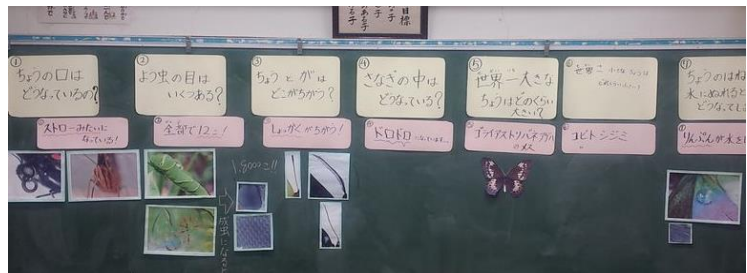 目標
①
ちょうの口は
どうなっているの?
①ストローみたいに
なっている!
②
よう虫の目は
いくつある?
②全部で12こ!
③
ちょうとがは
どこがちがう?
③しょっかくがちがう!
④
さなぎの中は
どうなっている?
④ドロドロになっています。
⑤
世界一大きな
ちょうはどのくらい
大きい?
⑤ゴライアストリバネアゲハ
のメス
⑥
世界一小さなちょうは
どれくらい?
⑥コビトシジミ
⑦
ちょうのはね
水にぬれると
どうなって
①りんぷんが水を
成虫になると